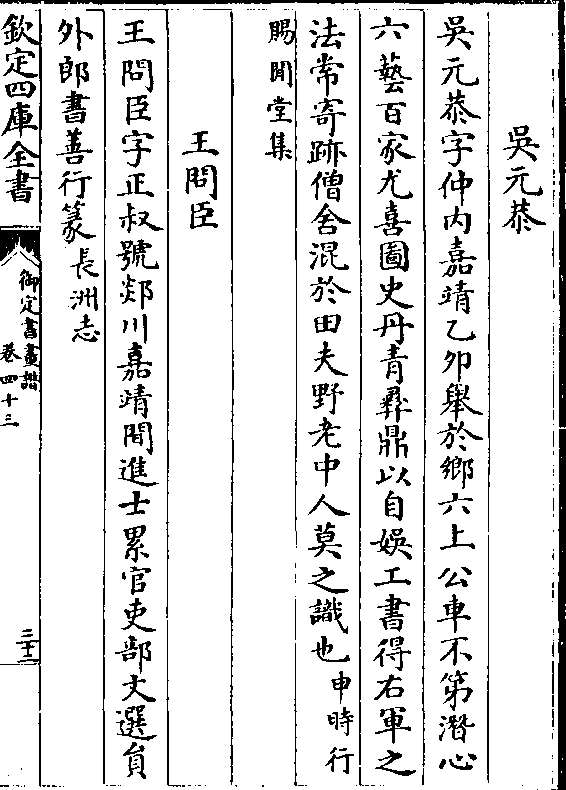 吳元恭
吳元恭字仲内嘉靖乙卯舉於鄉六上公車不第潛心
六藝百家尤喜圖史丹青彛鼎以自娛工書得右軍之
法常寄跡僧舍混於田夫野老中人莫之識也申時行
賜閒堂集
王問臣
王問臣字正叔號郯川嘉靖間進士累官吏部文選員
外郎書善行篆長洲志
欽定四庫全書
御定書畫譜
卷四十三
三十二